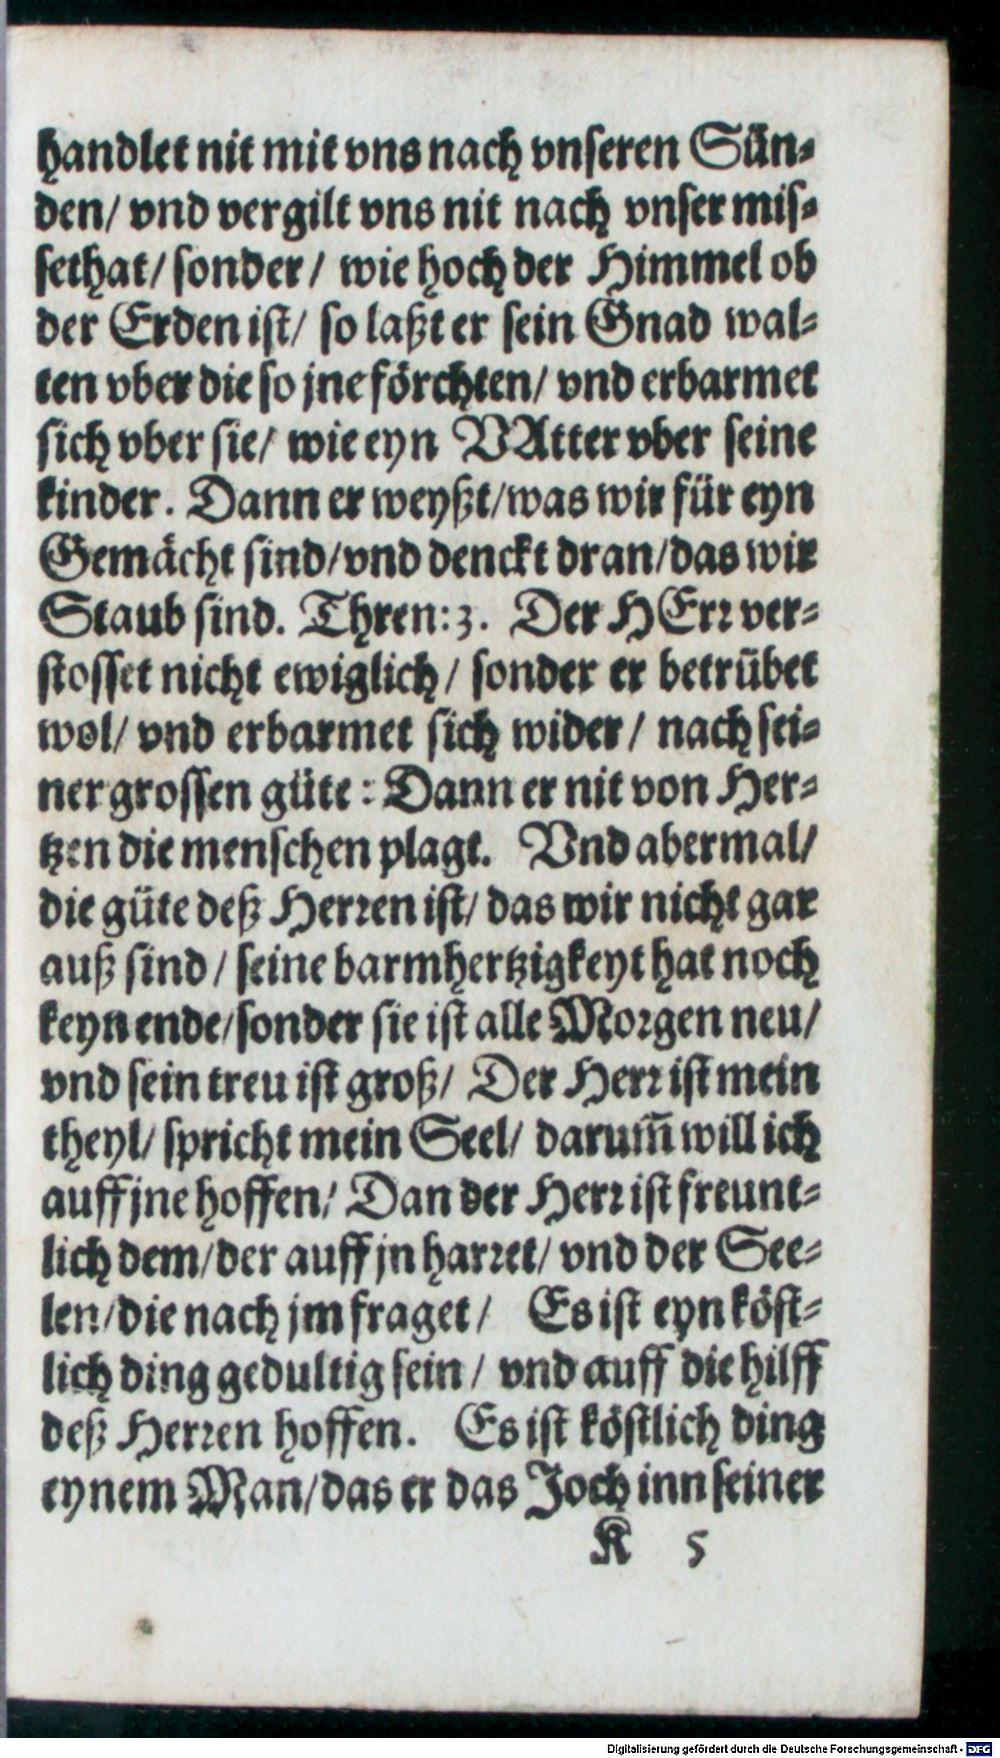 handlet nit mit vns nach vnseren Sün⸗
den/ vnd vergilt vns nit nach vnser mis⸗
sethat/ sonder/ wie hoch der Himmel ob
der Erden ist/ so laßt er sein Gnad wal⸗
ten vber die so jne förchten/ vnd erbarmet
sich vber sie/ wie eyn VAtter vber seine
kinder. Dann er weyßt/was wir für eyn
Gemächt sind/vnd denckt dran/das wir
Staub sind. Thren:3. Der HErr ver⸗
stosset nicht ewiglich/ sonder er betrübet
wol/ vnd erbarmet sich wider/ nach sei⸗
ner grossen güte: Dann er nit von Her⸗
tzen die menschen plagt. Vnd abermal/
die güte deß Herren ist/ das wir nicht gar
auß sind/ seine barmhertzigkeyt hat noch
keyn ende/sonder sie ist alle Morgen neu/
vnd sein treu ist groß/ Der Herr ist mein
theyl/ spricht mein Seel/ darum̃ will ich
auff jne hoffen/ Dan der Herr ist freunt⸗
lich dem/der auff jn harret/ vnd der See⸗
len/die nach jm fraget/ Es ist eyn köst⸗
lich ding gedultig sein/ vnd auff die hilff
deß Herren hoffen. Es ist köstlich ding
eynem Man/das er das Joch inn seiner
K 5
Digitalisierung gefördert durch die Deutsche Forschungsgemeinschaft - DFG